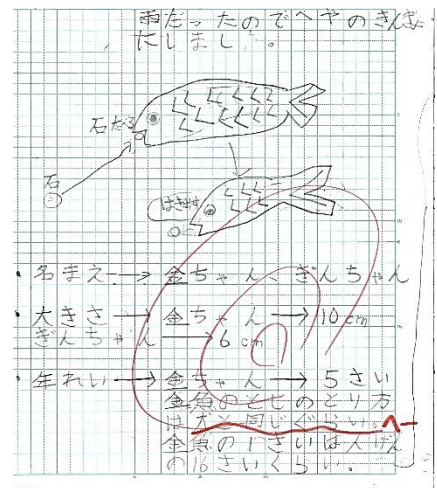 雨だったのでへやのきんぎょ
にしました。
石だろ
石
はきだす
・名まえ→金ちゃん、ぎんちゃん
・大きさ→金ちゃん→10cm
ぎんちゃん→6cm
・年れい→金ちゃん→5さい
金魚のとしのとり方
は犬と同じぐらい。
金魚の1さいはんげん
の16さいくらい。